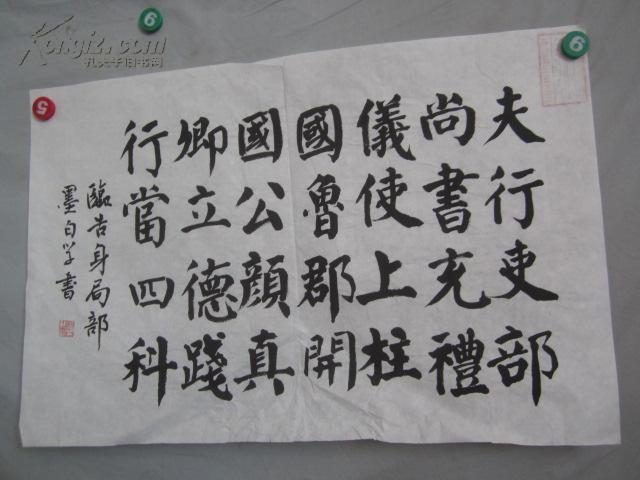 夫行吏部
尚書充禮
儀使上柱
國魯郡開
國公顏真
卿立德踐
行當四科
臨告身局部
墨白学書
Kongfz.com
孔夫子旧书网
5